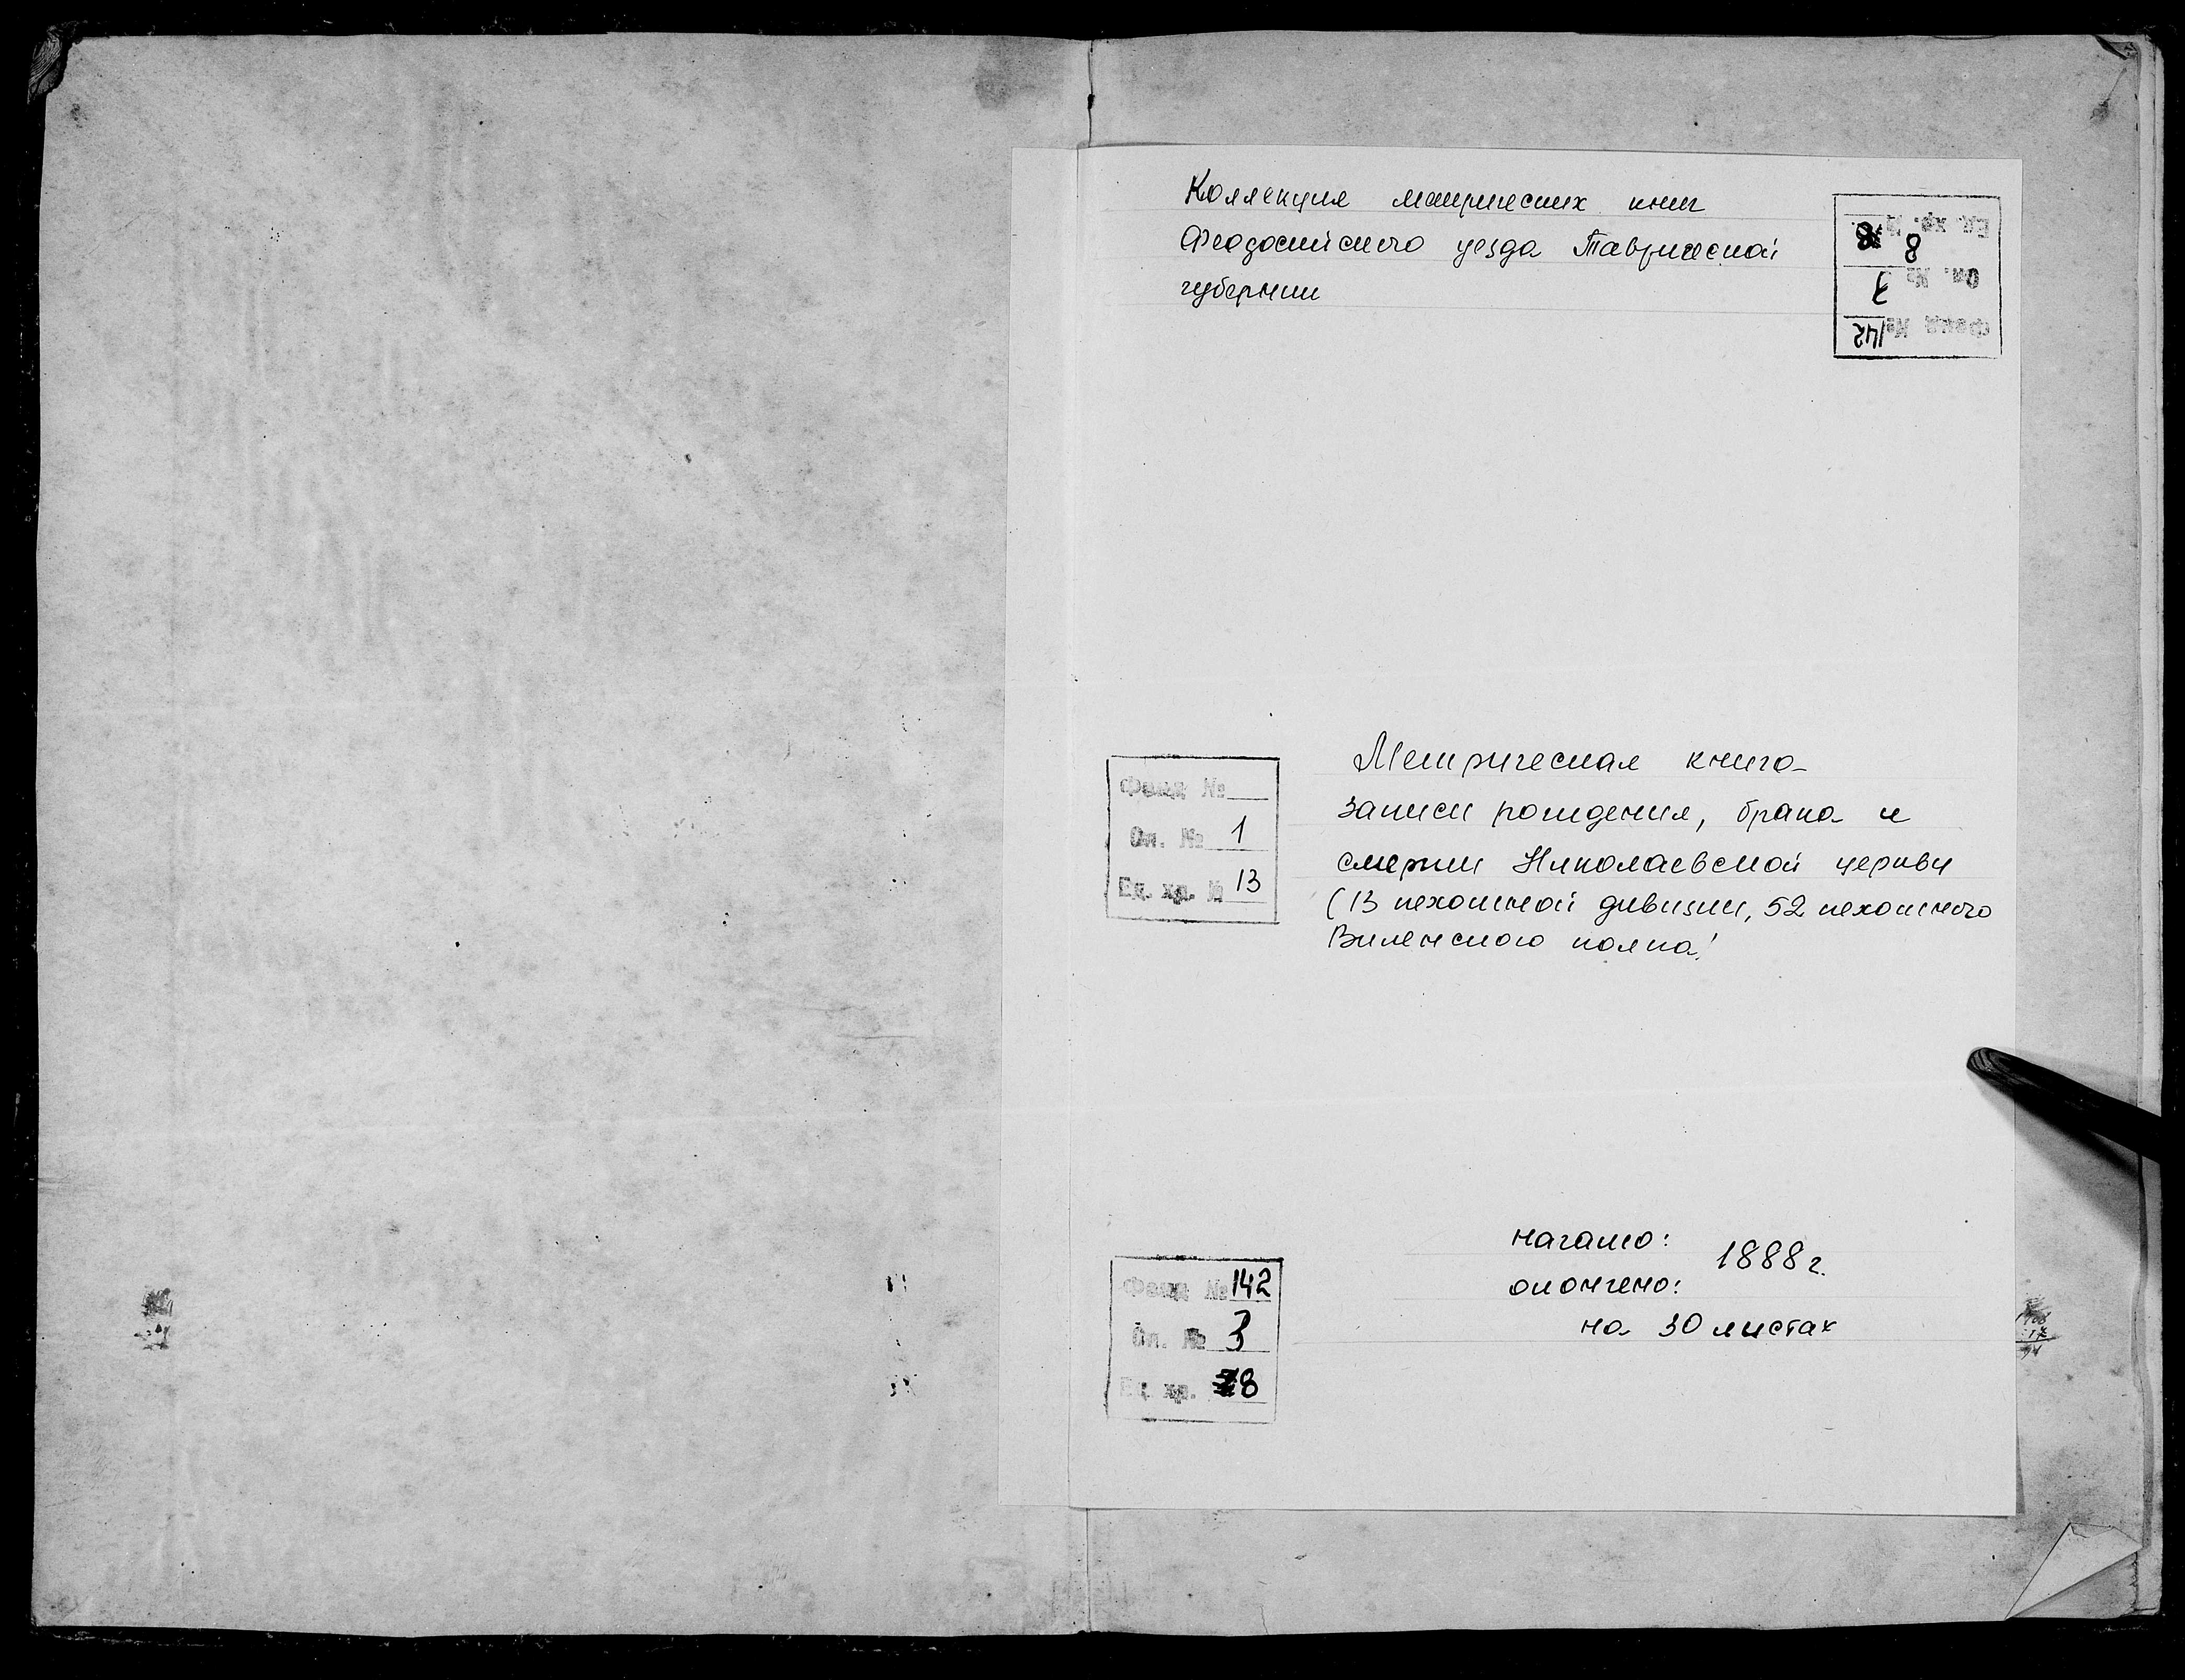 Коллекция метрических книг
Феодосийского уезда Таврической
губернии
Ед. хр. № 8
8
Оп. №
Фонд № 142
Метрическая книга
записи рождения, брака и
смерти Николаевской церкви
(13 пехотной дивизии, 52 пехотного
Виленского полка)
Фонд №
Оп. № 1
Ед. хр. № 13
начато:
1888 г.
окончено:
на 30 листах
Фонд № 142
Оп. № 3
Ед. хр. 8